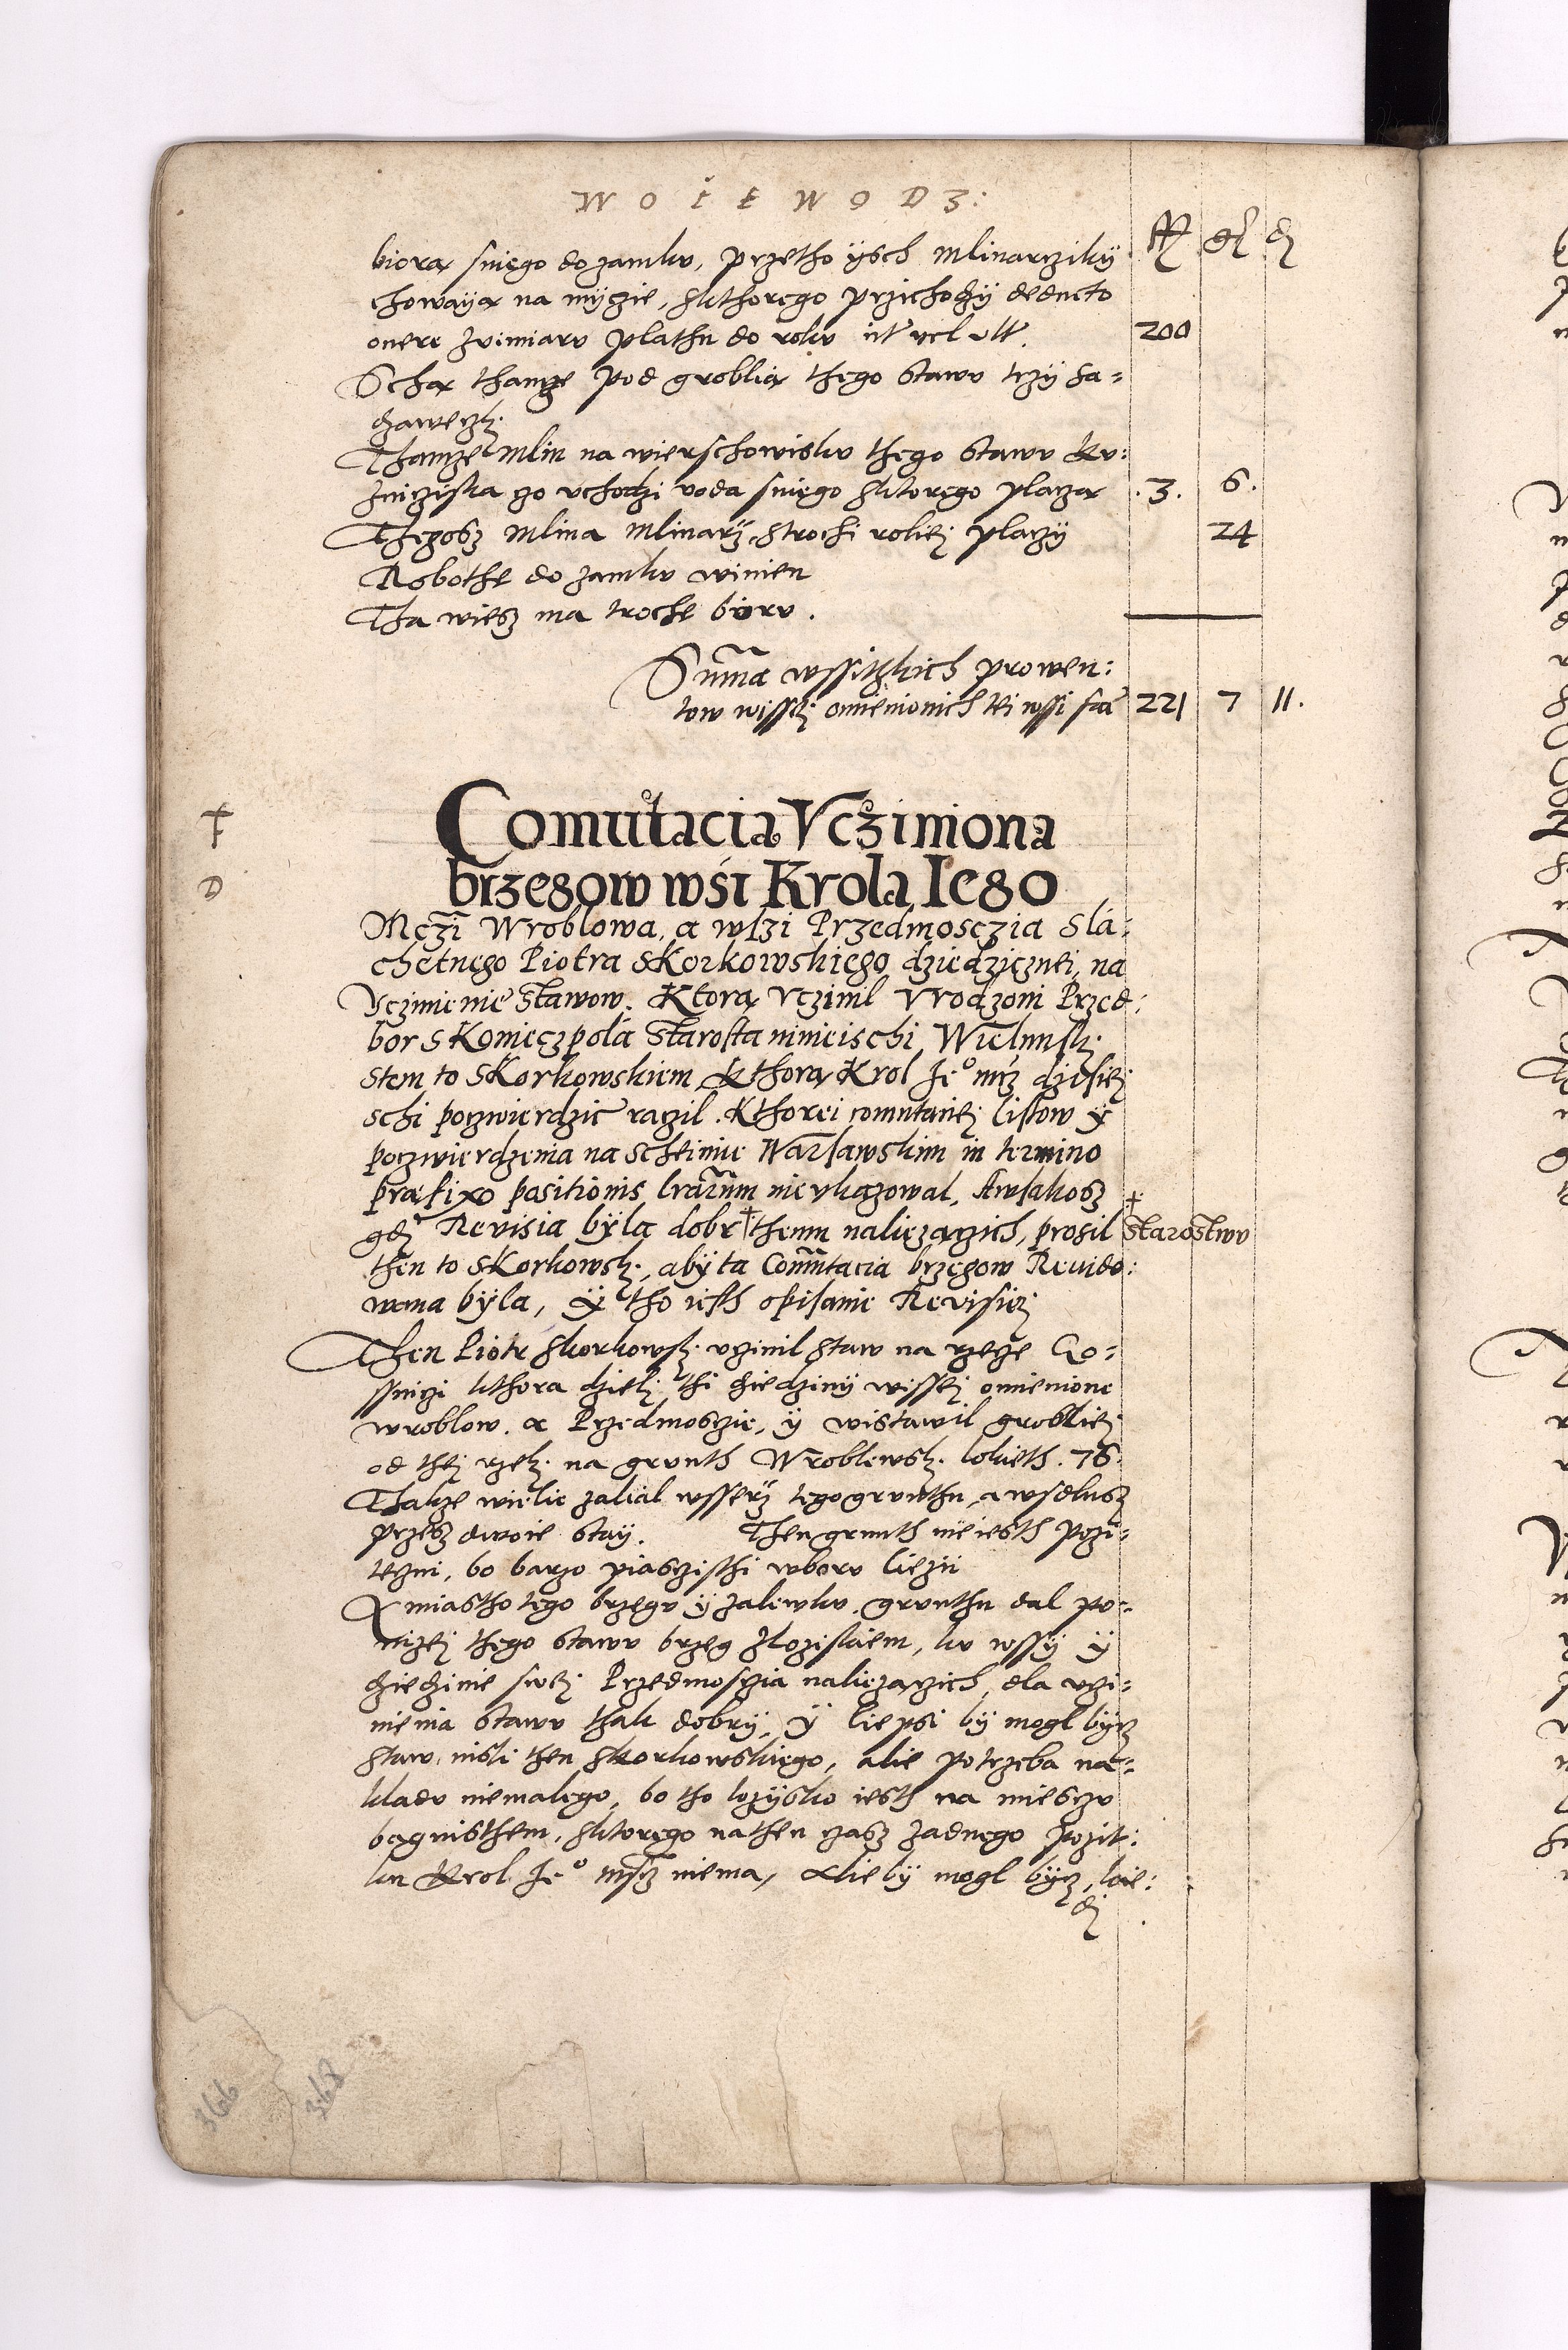 WOIEWODZ:
biorą sniego do zamku, przetho ysch mlinarziky
chowaya na myczie, skthorego przichodzy deducto
onere zvimiaru plathu do roku ut vel ult. 200
Schą thamze pod groblią thego stawu trzy sa=
dzaweczk:
Thamze Mlin na wierschowisku thego stawu Ku:
zniczyska zo vchodzi voda sniego sktorego placzą .3. 6.
Thegosz Mlina Mlinarz, strochi roliej placzy 24
Robothe do zamku winien
Tha wiesz ma troche boru.
Suma wssitzkich prowen:
tow wissej omienionich tei wssi fac 221 7 11.
Comutacia Vczimiona
brzegow wśi Krola Iego
Mczi Wroblowa, a wszi Przedmosczia Sla:
chetnego Piotra Skorkowskiego dziedzicznei, na
Vczinienie Stawow. Ktorą Vczinil Vrodzoni Przed:
bor S Koniecżpola Starosta ninieischi Wielunsk:
Stem to Skorkowskiem, Kthorą Krol Je° mcz dzisiej
schi poczwierdzic raczil. Kthorei comutaciej listow y
poczwierdzenia na Scheimie Warsawskim in termino
præfixo positionis lrarum nie vkazowal, Awsakosz
gdy Revisia byla dobr † themu naliezaczich, prosil † Starostwu
then to Skorkowsk:, aby ta Commutacia brzegow Reuido:
wana byla, Y tho iesth opisanie Revisiej
Then Piotr Skorkowsk: vczinil staw na rzecze Co=
ssniczi kthora dzieli thi dziedziny wissej omienione
wroblow. a Przedmoszcie, y wistawil grobliej
od thej rzek: na grunth Wroblewsk: lokieth. 76.
Thakze wielie zalial wsserz tego grunthu, a wsdlusz
przesz dwoie stay. Then grunth nie iesth pozi=
teczni, bo barzo piasczisthi w boru liezii
A miastho tego brzegu y zalewku, grunthu dal po=
nizej thego stawu brzeg zlozyskiem, ku wssy y
dziedzinie swej Przedmosczia naliezaczich, dla vczi=
nienia stawu thak dobry, y liepsi by mogl bycz
staw, nisli then Skorkowskiego, alie potrzeba na=
kladu niemalego, bo tho lozysko iesth na miesczu
bagnisthem, sktorego na then czasz zadnego pozit:
ku Krol Je° mscz niema, Alie by mogl bycz, kie:
dj
† D
366
368